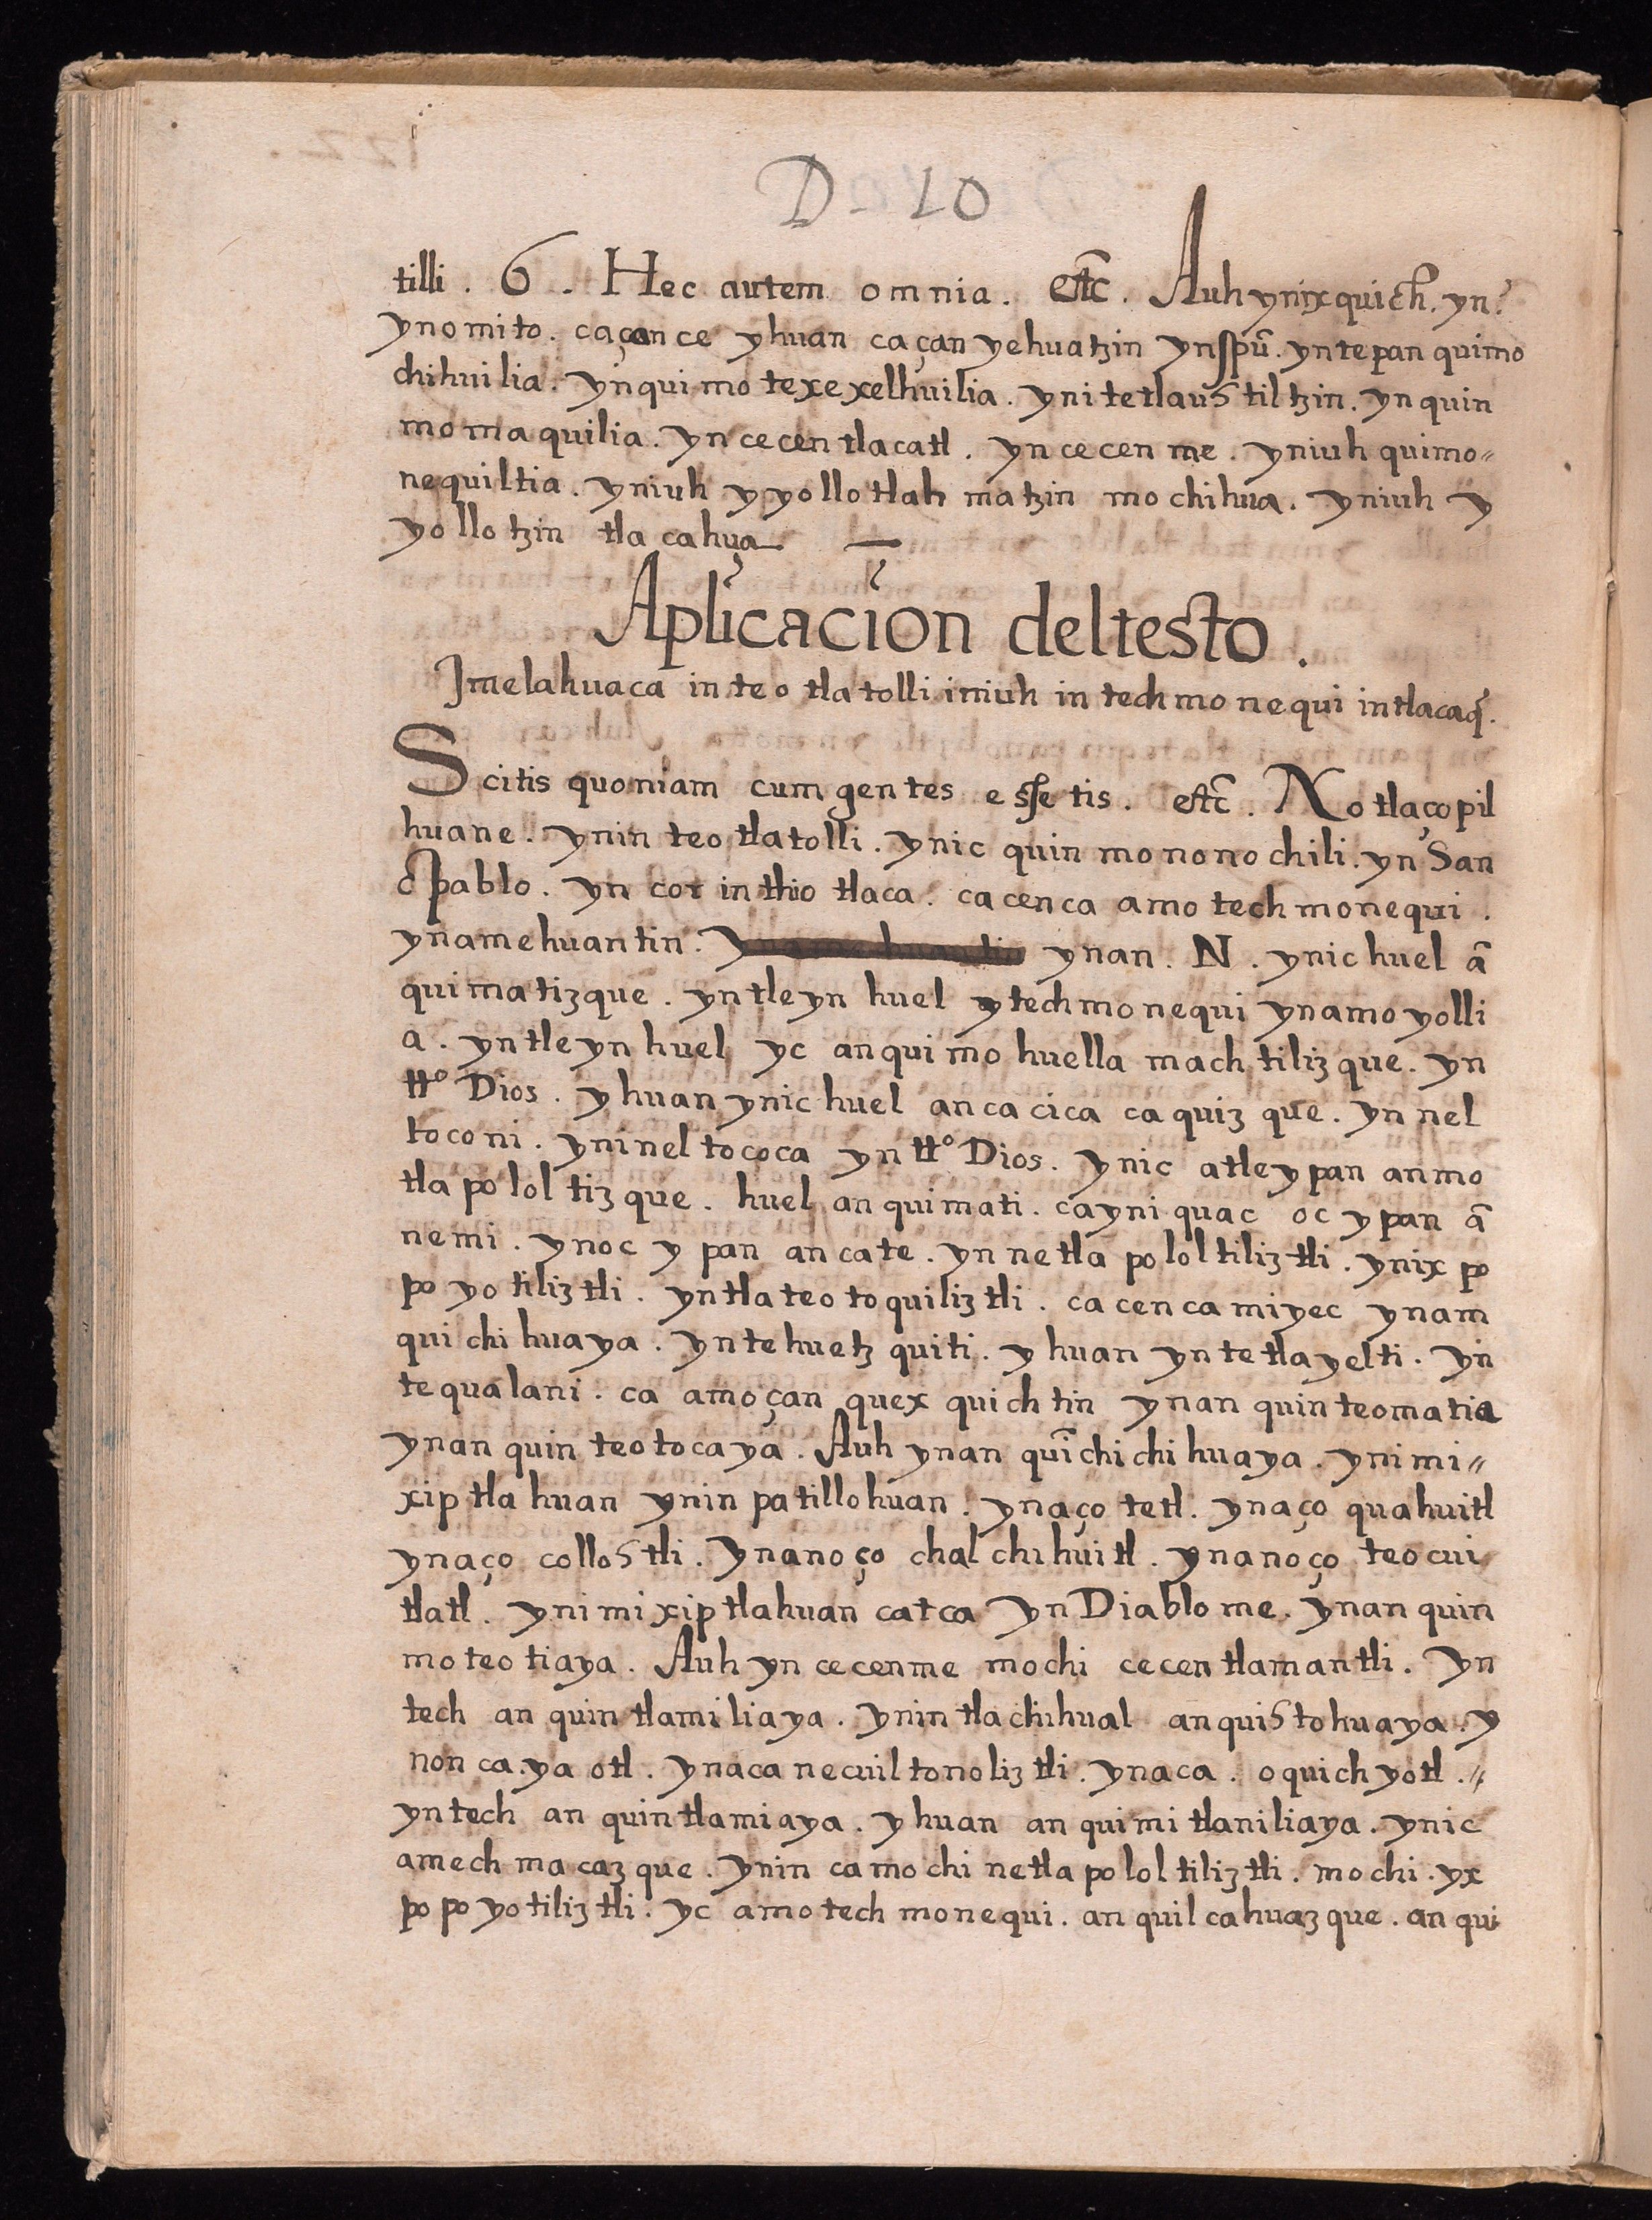 D - 10
tilli. 6. Hec autem omnia. etc̃. Auh ynixquich. yn
ynomito. caçance yhuan caçan yehuatzin ynspũ. yntepan quimo
chihuilia. ynquimotexexelhuilia. ynitetlauStiltzin. ynquin
momaquilia. yncecentlacatl. yncecenme. yniuh quimo=
nequiltia. yniuh yyollotlah matzin mochihua. yniuh y
yollotzin tlacahua
Aplicacion deltesto.
Jmelahuaca inteotlatolli iniuh intechmonequi intlacaq̃.
Scitis quoniam cum gentes essetis. etc̃. Notlaçopil
huane. ynin teotlatolli. ynic quinmononochili. yn San
Pablo. yn corinthio tlaca. cacenca amotechmonequi.
ynamehuantin. ynan. N. ynichuel ã
quimatizque. yntleyn huel ytechmonequi ynamoyolli
a. yntleynhuel yc anquimohuellamachtilizque. yn
ttº Dios. yhuan ynichuel ancacicacaquizque. ynnel
toconi. yninneltococa yn ttº Dios. ynic atleypan anmo
tlapololtizque. huel anquimati. cayniquac oc ypan ã
nemi. ynoc ypan ancate. ynnetlapololtiliztli. ynixpo
poyotiliztli. yntlateotoquiliztli. cacencamiyec ynam
quichihuaya. yntehuetzquiti. yhuan yntetlayelti. yn
tequalani. ca amoçan quexquichtin ynan quinteomatia
ynan quinteotocaya. Auh ynan quĩchichihuaya. ynimi=
xiptlahuan ynin patillohuan. ynaço tetl. ynaço quahuitl
ynaço colloStli. ynanoço chalchihuitl. ynanoço teocui
tlatl. ynimixiptlahuan catca yn Diablome. ynan quin
moteotiaya. Auh yn cecenme mochi cecentlamantli. yn
tech an quintlamiliaya. ynintlachihual anquiStohuaya. y
nonca.yaotl. ynaca necuiltonoliztli. ynaca. oquichyotl.=
yntech an quintlamiaya. yhuan an quimitlaniliaya. ynic
amechmacazque. ynin camochi netlapololtiliztli. mochi. yx
popoyotiliztli. yc amotechmonequi. an quilcahuazque. an qui